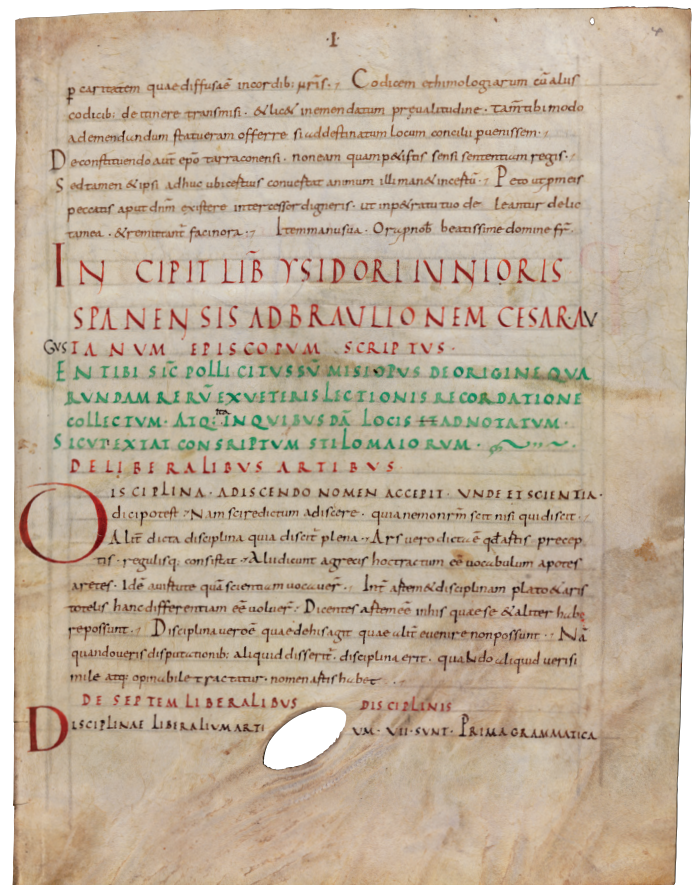 ·I·
p caritatem quae diffusa ē in cordib; nr̄is. Codicem ethimologiarum cū alus
codicib; de itinere transmisi. & lic& inemendatum prę ualitudine. tam̄ tibi modo
ad emendandum statueram offerre si ad destinatum locum concilii puenissem.
De constituendo aut̄ ep̄o tarraconensi. non eam quam p&istis sensi sententiam regis.
Sed tamen & ipsi adhuc ubi certius conuertat animum illi man& incertū. Peto ut p meis
peccatis aput dnm̄ existere intercessor digneris. ut inp&ratu tuo deleantur delic
ta mea. & remittant̄ facinora. Item manu sua. Ora p nob beatissime domine fr̄.
IN CIPIT LIB̄ YSIDORI IUNIORIS
SPANENSIS AD BRAULIONEM CESARAU
GUSTANUM EPISCOPUM SCRIPTUS.
EN TIBI SIC̄ POLLICITUS SŪ MISI OPUS DE ORIGINE QUA
RUNDAM RERŪ EX UETERIS LECTIONIS RECORDATIONE
COLLECTUM. ATQ; ita IN QUIBUSDĀ LOCIS ADNOTATUM.
SICUT EXTAT CONSRIPTUM STILO MAIORUM.
DE LIBERALIBUS ARTIBUS
DISCIPLINA. A DISCENDO NOMEN ACCEPIT. UNDE ET SCIENTIA.
dici potest. Nam scire dictum a discere. quia nemo nrm̄ scit nisi qui discit.
Alit̄ dicta disciplina quia discit̄ plena. Ars uero dicta ē qd̄ artis precep
tis. regulisq; consistat. Alu dicunt a grecis hoc tractum eē uocabulum apo tes
ar&es. Idē a uirtute quā scientiam uocauer̄. Int̄ artem & disciplinam plato & aris
totelis hanc differentiam eē uoluer̄. Dicentes artem eē in his quae se & aliter habe
re possunt. Disciplina uero ē quae de his agit quae alit̄ euenire non possunt. Nā
quando ueris disputationib; aliquid disserit̄. disciplina erit. quando aliquid uerisi
mile atq; opinabile tractatur. nomen artis habet.
DE SEPTEM LIBERALIBUS DISCIPLINIS
DISCIPLINAE LIBERALIUM ARTIUM. VII. SUNT. PRIMA GRAMMATICA